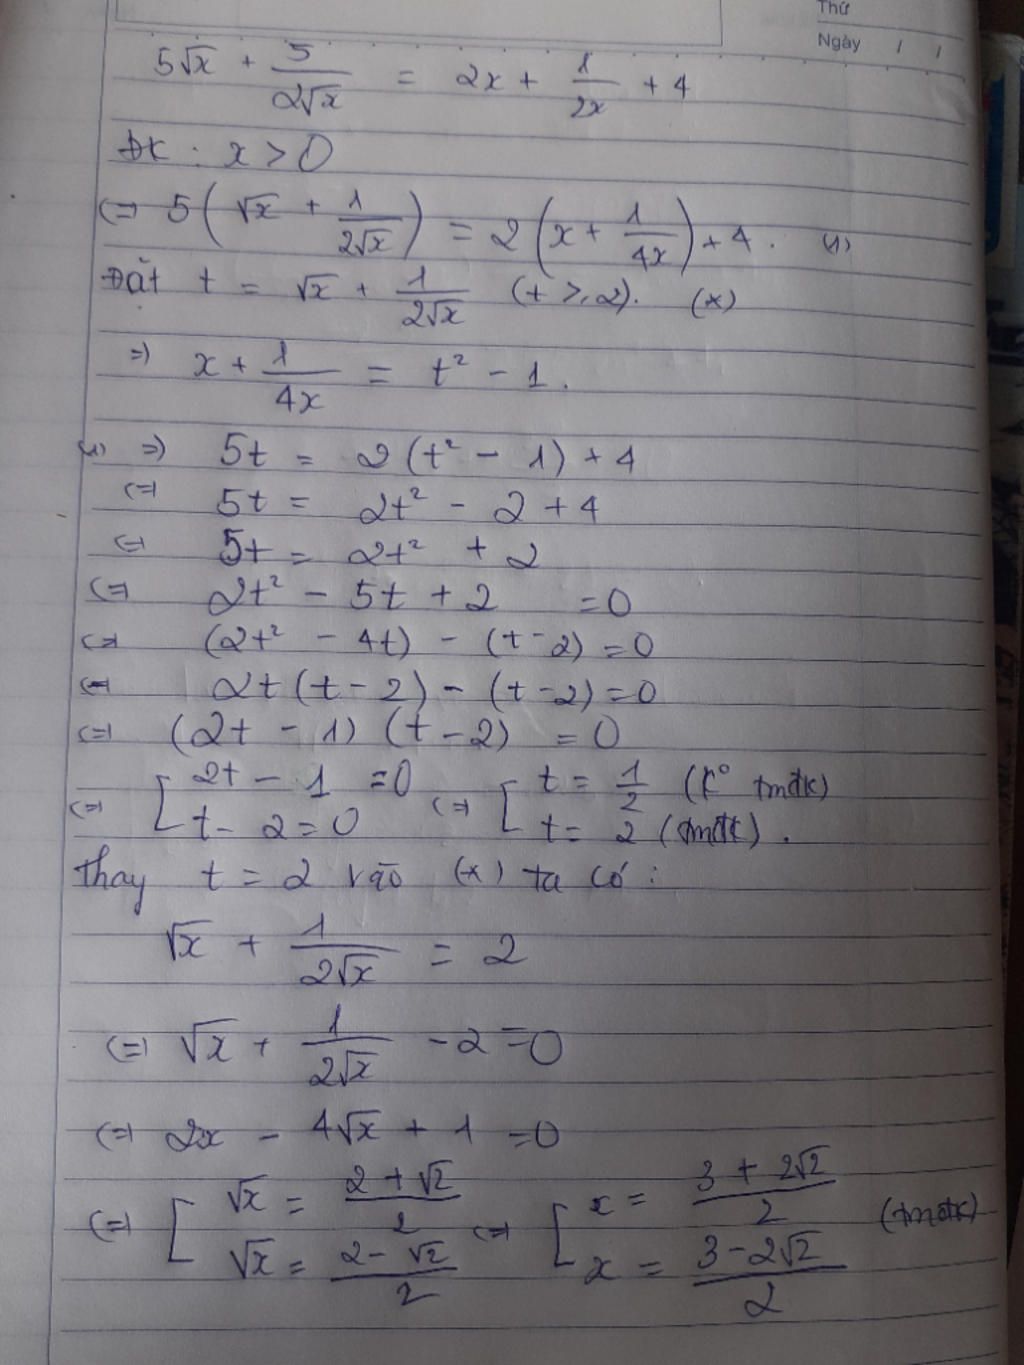 Thứ
Ngày / /
5√x + 5/(2√x) = 2x + 1/(2x) + 4
ĐK : x > 0
(=) 5(√x + 1/(2√x)) = 2(x + 1/(4x)) + 4 . (1)
Đặt t = √x + 1/(2√x) (t >, 2). (*)
=) x + 1/(4x) = t² - 1 .
(1) =) 5t = 2(t² - 1) + 4
(=) 5t = 2t² - 2 + 4
(=) 5t = 2t² + 2
(=) 2t² - 5t + 2 = 0
(=) (2t² - 4t) - (t - 2) = 0
(=) 2t(t - 2) - (t - 2) = 0
(=) (2t - 1) (t - 2) = 0
(=) [ 2t - 1 = 0 (=) [ t = 1/2 (k° tmđk)
t - 2 = 0 t = 2 (tmđk) .
Thay t = 2 vào (*) ta có :
√x + 1/(2√x) = 2
(=) √x + 1/(2√x) - 2 = 0
(=) 2x - 4√x + 1 = 0
(=) [ √x = (2 + √2)/2 (=) [ x = (3 + 2√2)/2 (tmđk)
√x = (2 - √2)/2 x = (3 - 2√2)/2